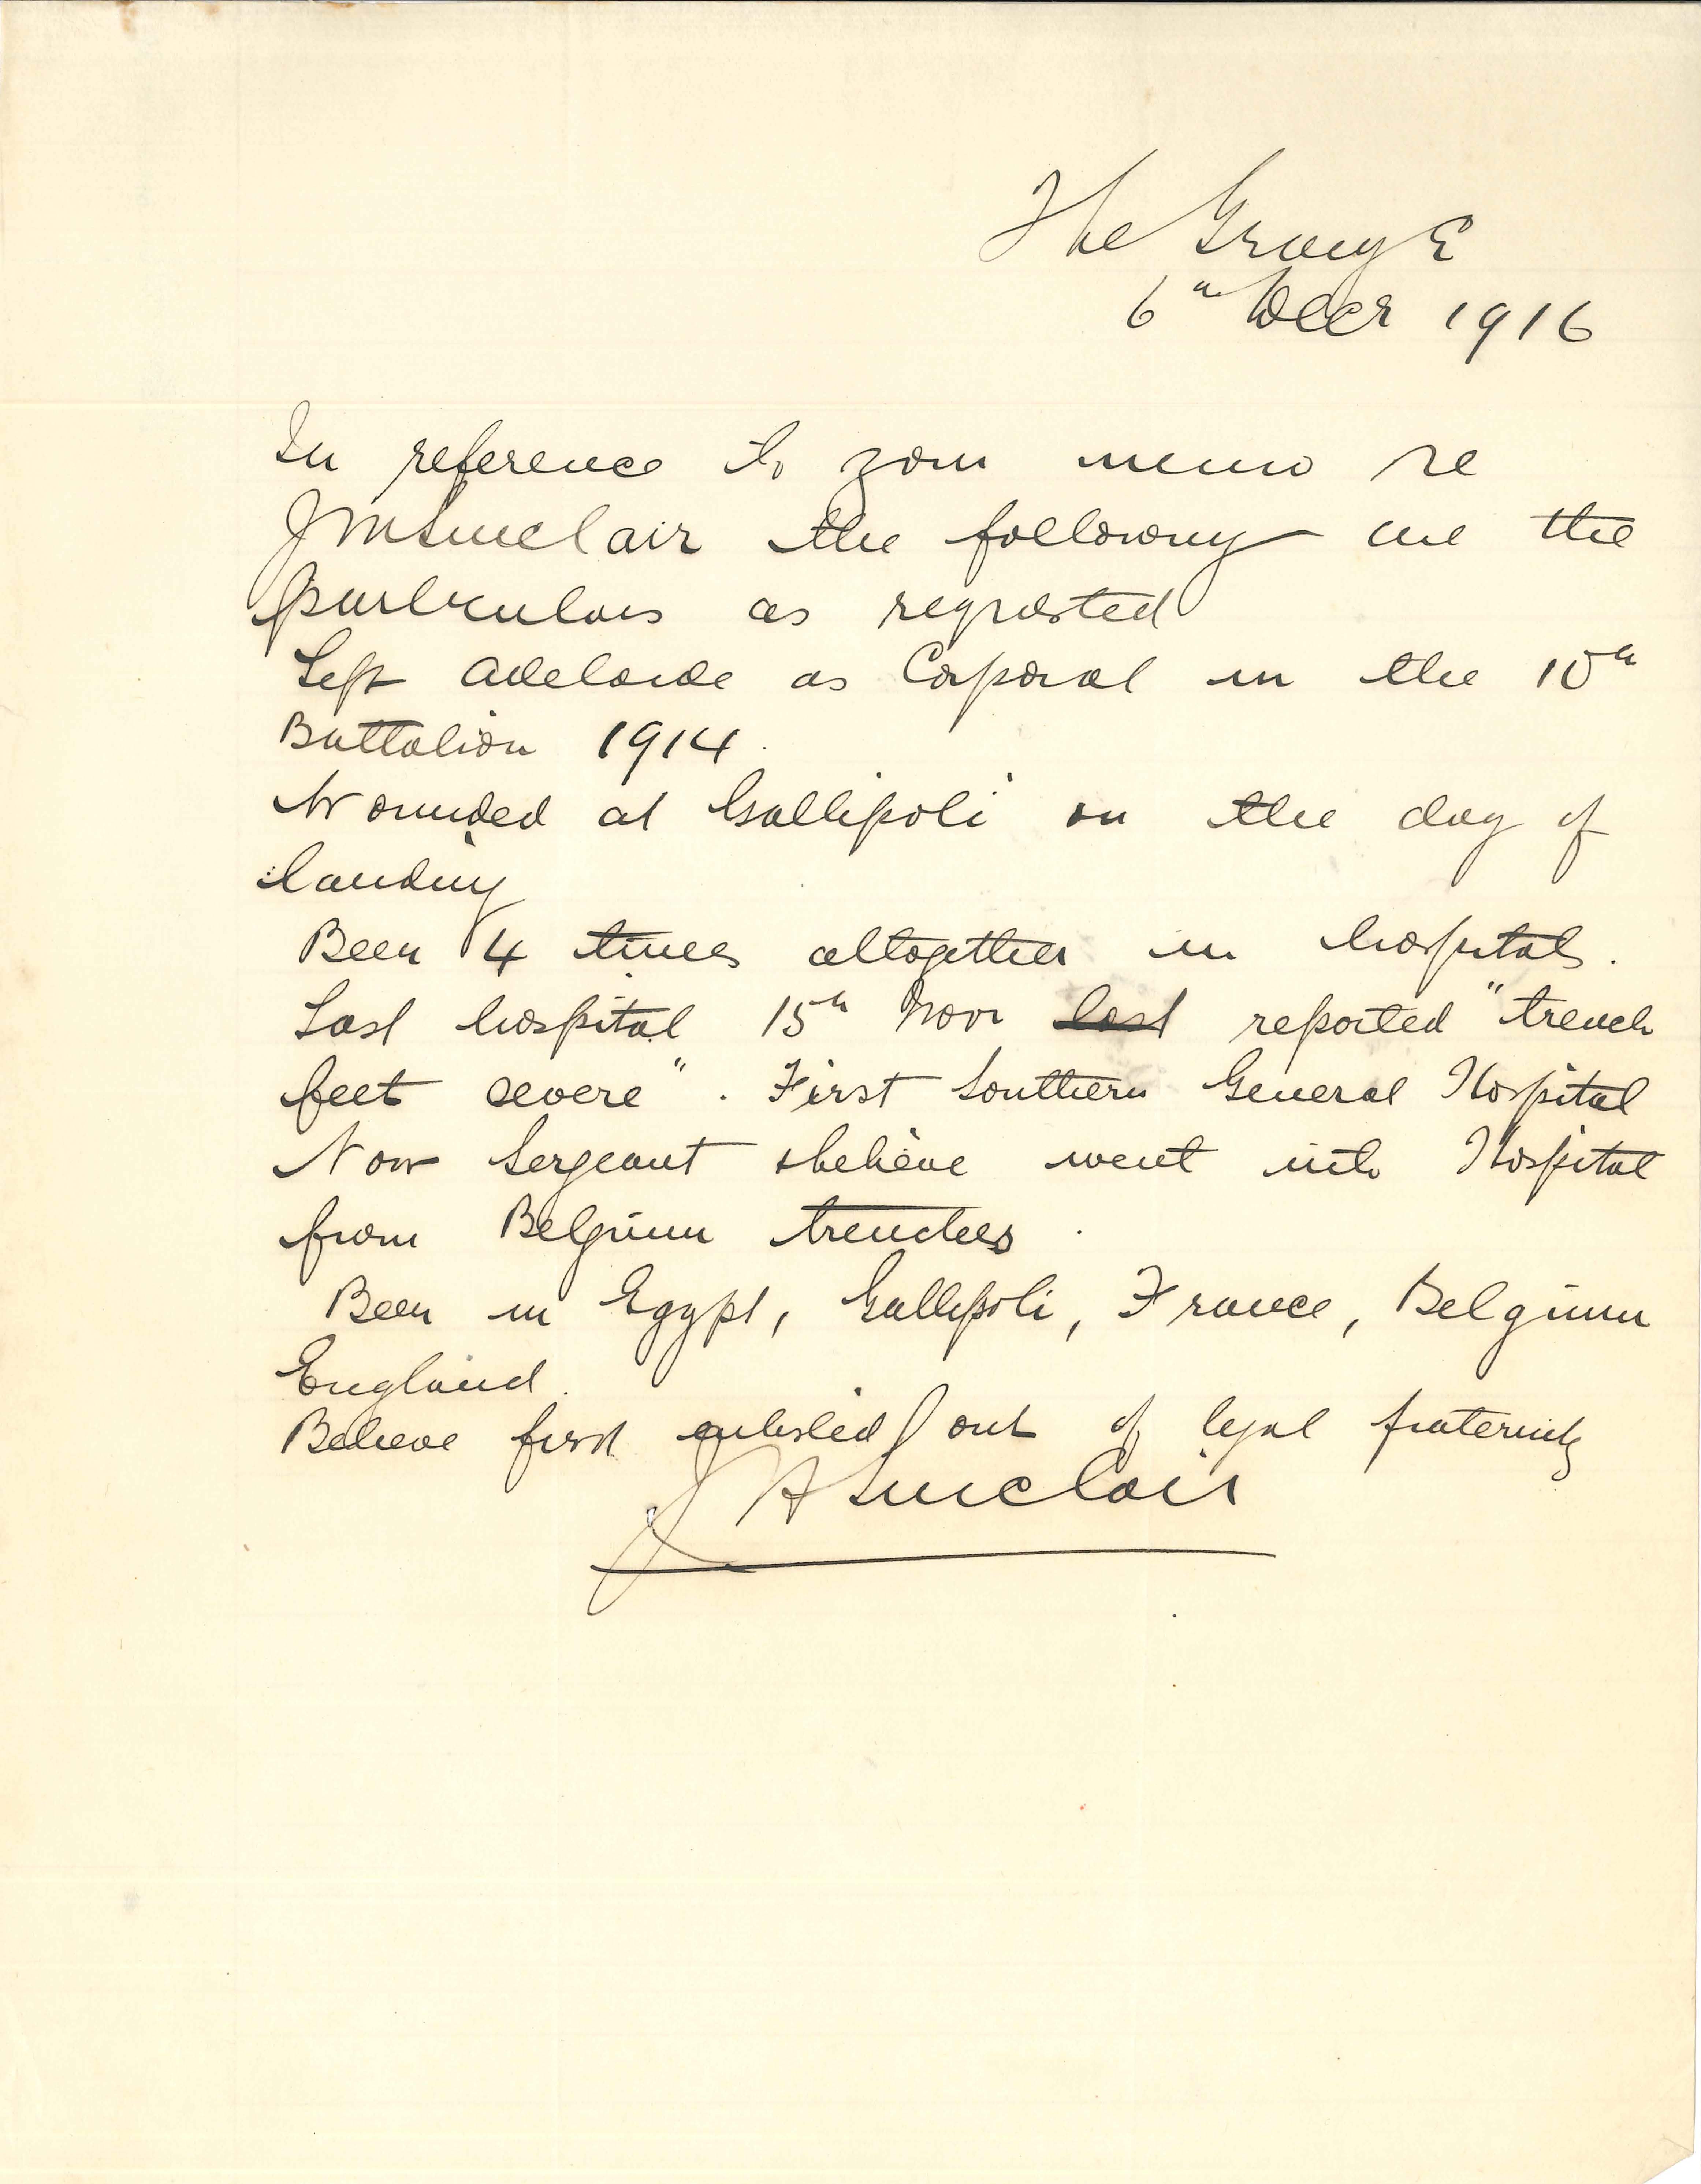 The Grange
6th Decr 1916
In reference to your memo re
J M Sinclair the following are the
particulars as requested
Left Adelaide as Corporal in the 10th
Battalion 1914.
Wounded at Gallipoli on the day of
landing
Been 4 times altogether in hospitals.
Last hospital 15th Novr last reported "trench
feet severe". First Southern General Hospital
Now Sergeant & believe went into Hospital
from Belgium trenches.
Been in Egypt, Gallipoli, France, Belgium
England.
Believe first enlisted out of legal fraternity
J A Sinclair